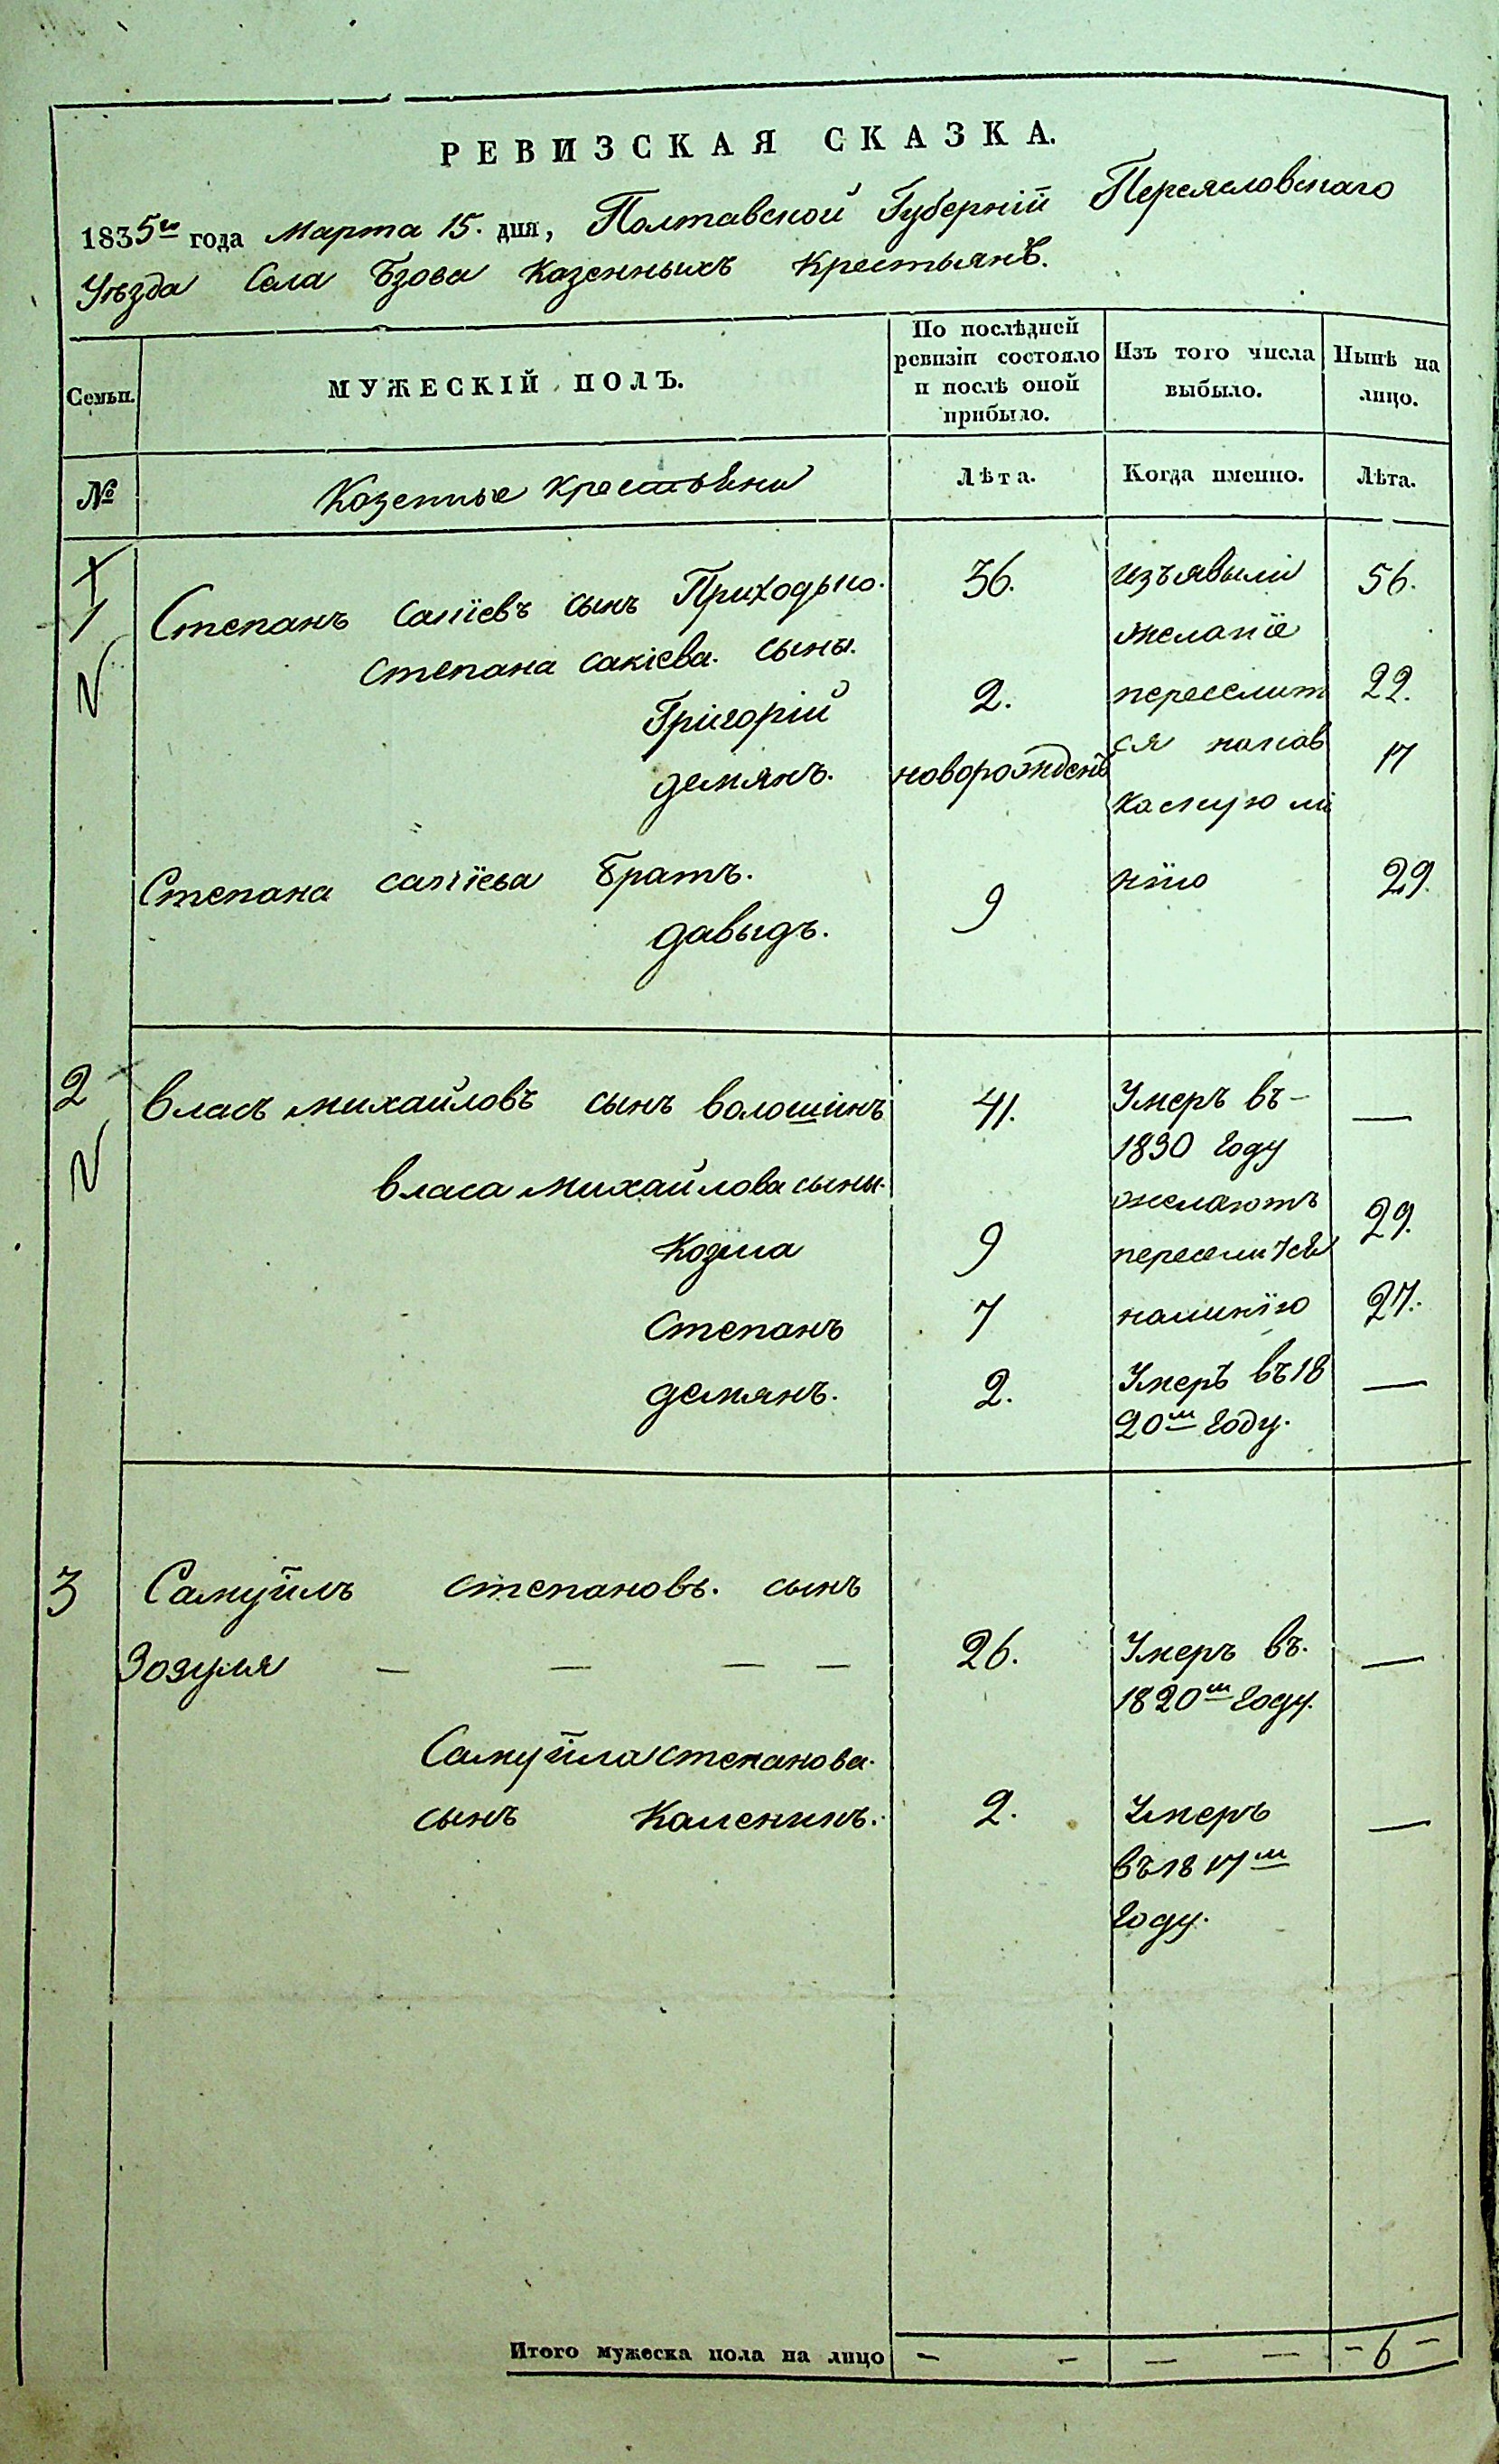 РЕВИЗСКАЯ СКАЗКА.
1835го года Марта 15. дня, Полтавской Губерніи Переясловскаго
Уѣзда Села Бзова Казенныхъ Крестьянъ.
Семьи.
МУЖЕСКІЙ ПОЛЪ.
По послѣдней ревизіи состояло и послѣ оной прибыло.
Изъ того числа выбыло.
Нынѣ на лицо.
№
Казенные крестьяни
Лѣта.
Когда именно.
Лѣта.
1 Степанъ сакіевъ сынъ Приходько. 36. изъявыли 56.
Степана сакіева. сыны. желаніе
Грігорій 2. переселит 22.
демянъ. новорожденъ ся накав 17
каскую лі
Степана сакіева братъ. нію 29.
давыдъ. 9
2 власъ михайловъ сынъ волошінъ 41. Умеръ въ — —
1830 году
власа михайлова сыны. желаютъ
Козма 9 переселитса 29.
Степанъ 7 налинію 27.
демянъ. 2. Умеръ въ 18 —
20м году.
3 Самуйлъ степановъ. сынъ
Зозуля — — — — 26. Умеръ въ. —
1820м году.
Самуйла степанова.
сынъ Каленикъ. 2. Умеръ —
въ 1817м
году.
Итого мужеска пола на лицо — — — — - 6 -